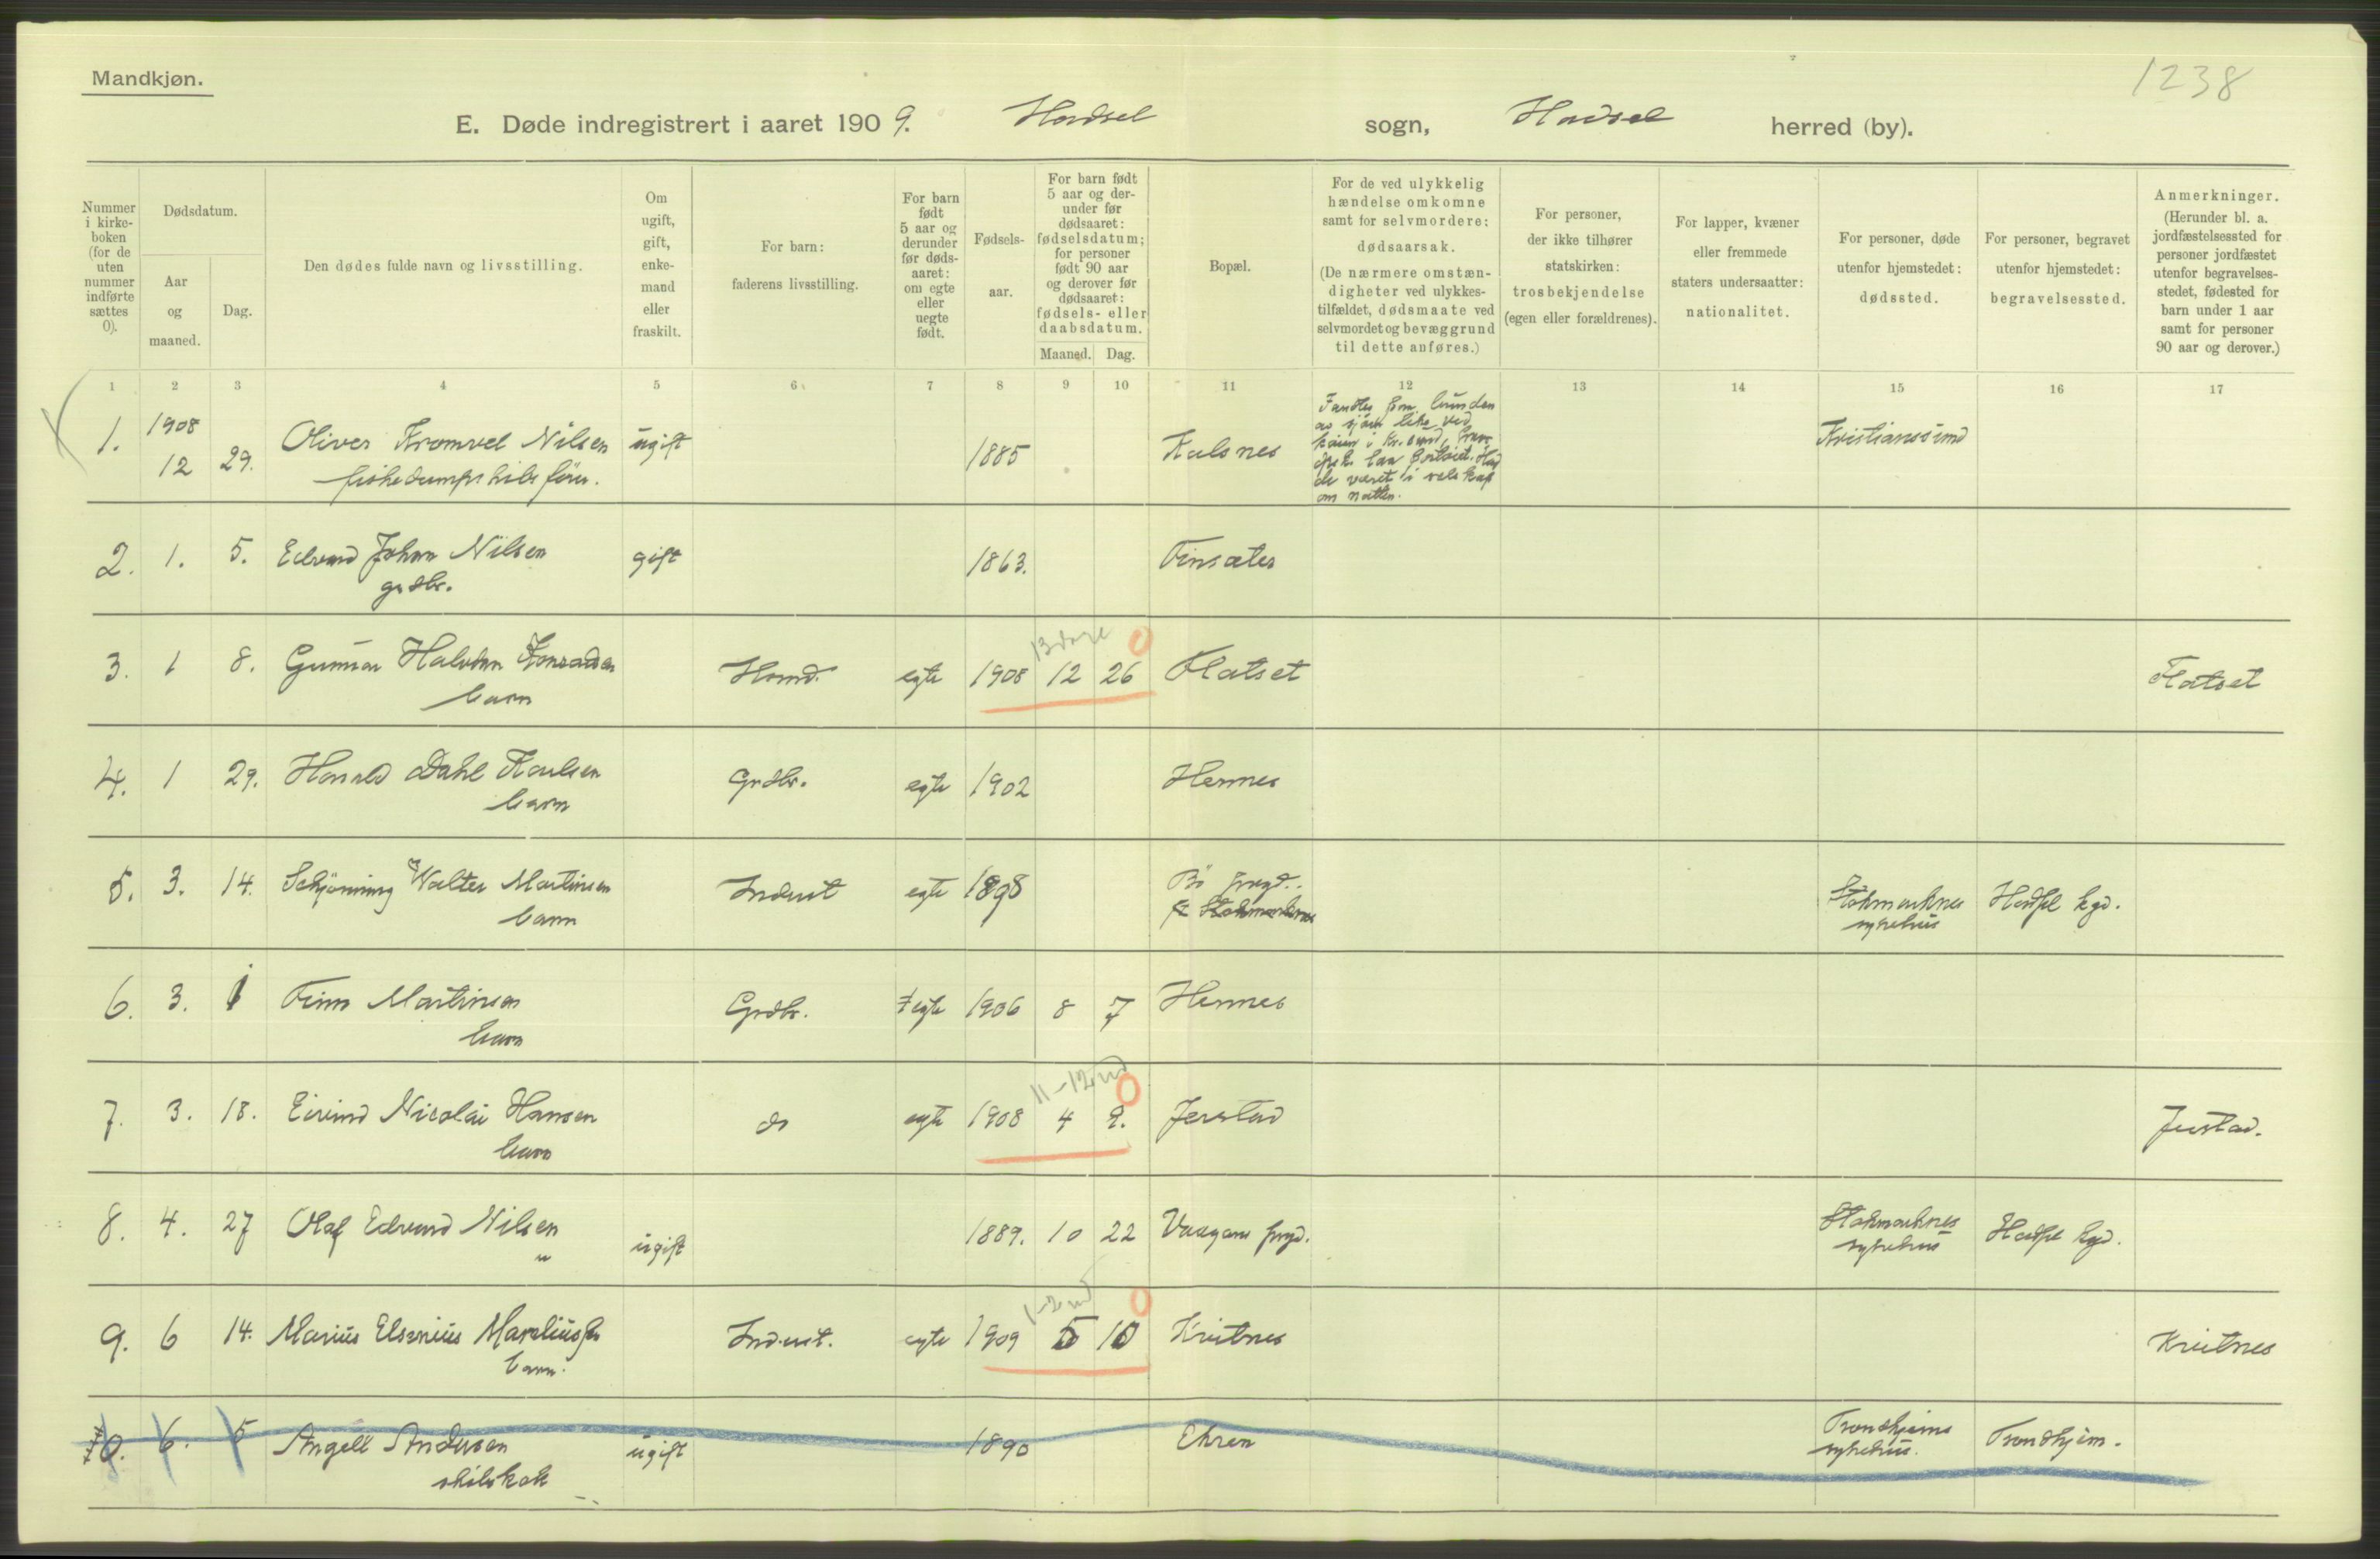 Mandkjøn.
1238
E. Døde indregistrert i aaret 1909. Hadsel sogn, Hadsel herred (by).
Nummer i kirke-boken (for de uten nummer indførte sættes 0).
Dødsdatum.
Aar og maaned.
Dag.
Den dødes fulde navn og livsstilling.
Om ugift, gift, enke-mand eller fraskilt.
For barn: faderens livsstilling.
For barn født 5 aar og derunder før døds-aaret: om egte eller uegte født.
Fødsels-aar.
For barn født 5 aar og der-under før dødsaaret: fødselsdatum; for personer født 90 aar og derover før dødsaaret: fødsels- eller daabsdatum.
Maaned. Dag.
Bopæl.
For de ved ulykkelig hændelse omkomne samt for selvmordere: dødsaarsak. (De nærmere omstæn-digheter ved ulykkes-tilfældet, dødsmaate ved selvmordet og bevæggrund til dette anføres.)
For personer, der ikke tilhører statskirken: trosbekjendelse (egen eller forældrenes).
For lapper, kvæner eller fremmede staters undersaatter: nationalitet.
For personer, døde utenfor hjemstedet: dødssted.
For personer, begravet utenfor hjemstedet: begravelsessted.
Anmerkninger. (Herunder bl. a. jordfæstelsessted for personer jordfæstet utenfor begravelses-stedet, fødested for barn under 1 aar samt for personer 90 aar og derover.)
1 2 3 4 5 6 7 8 9 10 11 12 13 14 15 16 17
1. 1908 12 29. Oliver Kromvel Nilsen ugift 1885 Kalsnes Kristianssund
om natten.
2. 1. 5. Edvard Johan Nilsen gift 1863. Finsæter
grdbr.
13 dage 0
3. 1 8. Gunnar Halvdan Konradsen Hand. egte 1908 12 26 Flatset Flatset
barn
4. 1 29. Harald Dahl Karlsen Grdbr. egte 1902 Hennes
barn
5. 3. 14. Schjönning Walter Martinsen Indust egte 1898 Bö prgd. Stokmarknes sykehus Hadsel kgd.
barn
6. 3. 1 Finn Martinsen Grdbr. egte 1906 8 7 Hennes
barn
11-12 md 0
7. 3. 18. Eivind Nicolai Hansen do egte 1908 4 9. Jerstad Jerstad.
barn
8. 4. 27 Olaf Edvard Nilsen ugift 1889. 10 22 Vaagans prgd. Stokmarknes sykehus Hadsel kgd.
"
1-2 md 0
9. 6 14. Marius Elsenius Mareliussen Indust. egte 1909 5 10 Kvitnes Kvitnes
barn.
10. 6. 5 Angell Andersen ugift 1890 Trondhjems sykehus. Trondhjem.
skibskok